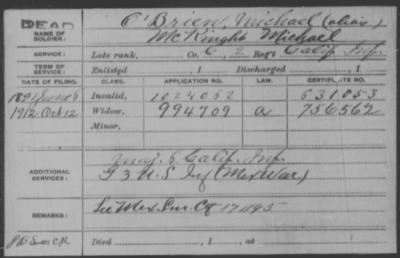 DEAD
O'Brien, Michael (alias)
NAME OF SOLDIER:
McKnight Michael
SERVICE: Late rank, Co. C, 2 Reg't Calif. Inf.
TERM OF SERVICE: Enlisted , 1 Discharged , 1
DATE OF FILING. CLASS. APPLICATION NO. LAW. CERTIFICATE NO.
Invalid, 1024052 631053
1912 Oct 12 Widow, 994709 a 756562
Minor,
ADDITIONAL SERVICES:
6 Calif. Inf.
3 U.S. Inf (Mex War)
REMARKS: See Mex Sur. Cf 17495
Died , 1 , at